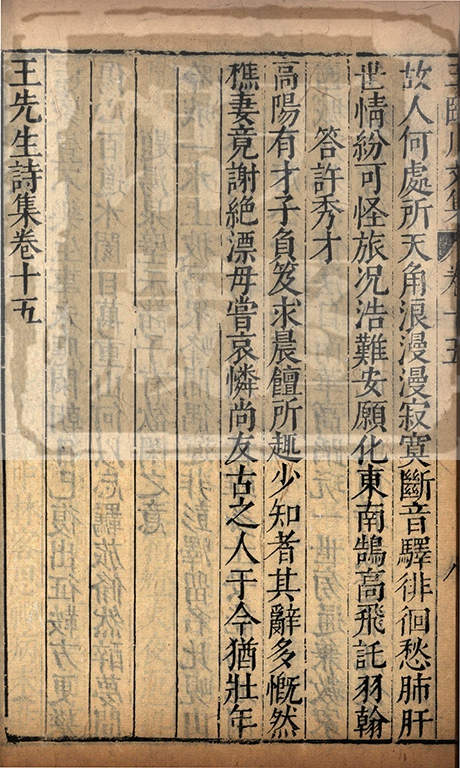 故人何處所天角浪漫漫寂寞斷音驛徘徊愁肺肝
世情紛可怪旅况浩難安願化東南鵠高飛託羽翰
答許秀才
高陽有才子負笈求晨饘所趣少知者其辭多慨然
樵妻竟謝絶漂母嘗哀憐尚友古之人于今猶壯年
王先生詩集卷十五